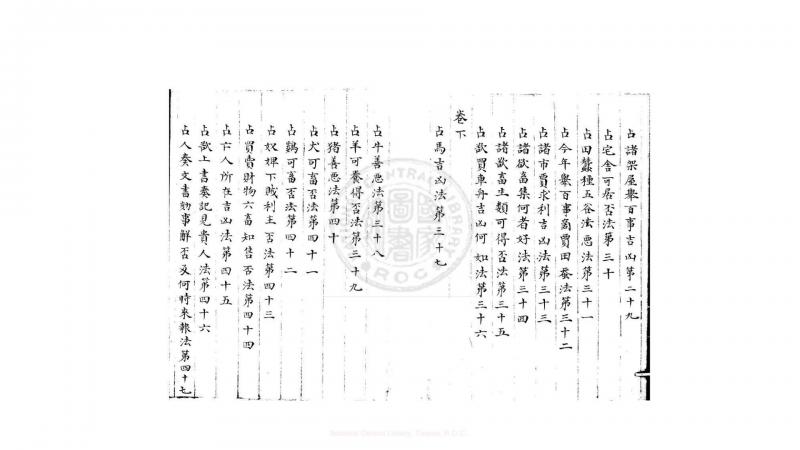 占諸架屋舉百事吉凶第二十九
占宅舍可居否法第三十
占田蠶種五谷法惡法第三十一
占今年舉百事商賈田蚕法第三十二
占諸市賈求利吉凶法第三十三
占諸欲畜集何者好法第三十四
占諸欲畜生類可得否法第三十五
占欲買車舟吉凶何如法第三十六
卷下
占馬吉凶法第三十七
占牛善惡法第三十八
占羊可養得否法第三十九
占猪善惡法第四十
占犬可畜否法第四十一
占鷄可畜否法第四十二
占奴婢下賊利主否法第四十三
占買賣財物六畜知售否法第四十四
占亡人所在吉凶法第四十五
占欲上書奏記見貴人法第四十六
占人奏文書劾事解否及何時來報法第四十七
National Central Library, Taiwan, R.O.C.